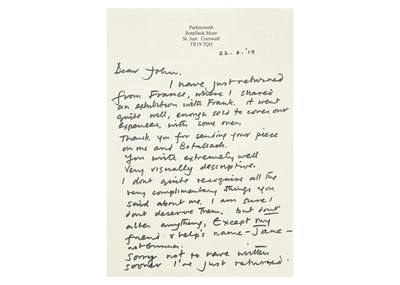 Parknoweth
Botallack Moor
St. Just Cornwall
TR19 7QH
22.6.'15
Dear John,
I have just returned
from France, where I shared
an exhibition with Frank. it went
quite well, enough sold to cover our
expenses, with some over.
Thank you for sending your piece
on me and Botallack.
You write extremely well
Very visually descriptive.
I dont quite recognise all the
very complimentary things you
said about me. I am sure I
dont deserve them, but dont
alter anything, Except my
friend & help's name - Jane -
not Emma.
Sorry not to have written
sooner I've just returned.